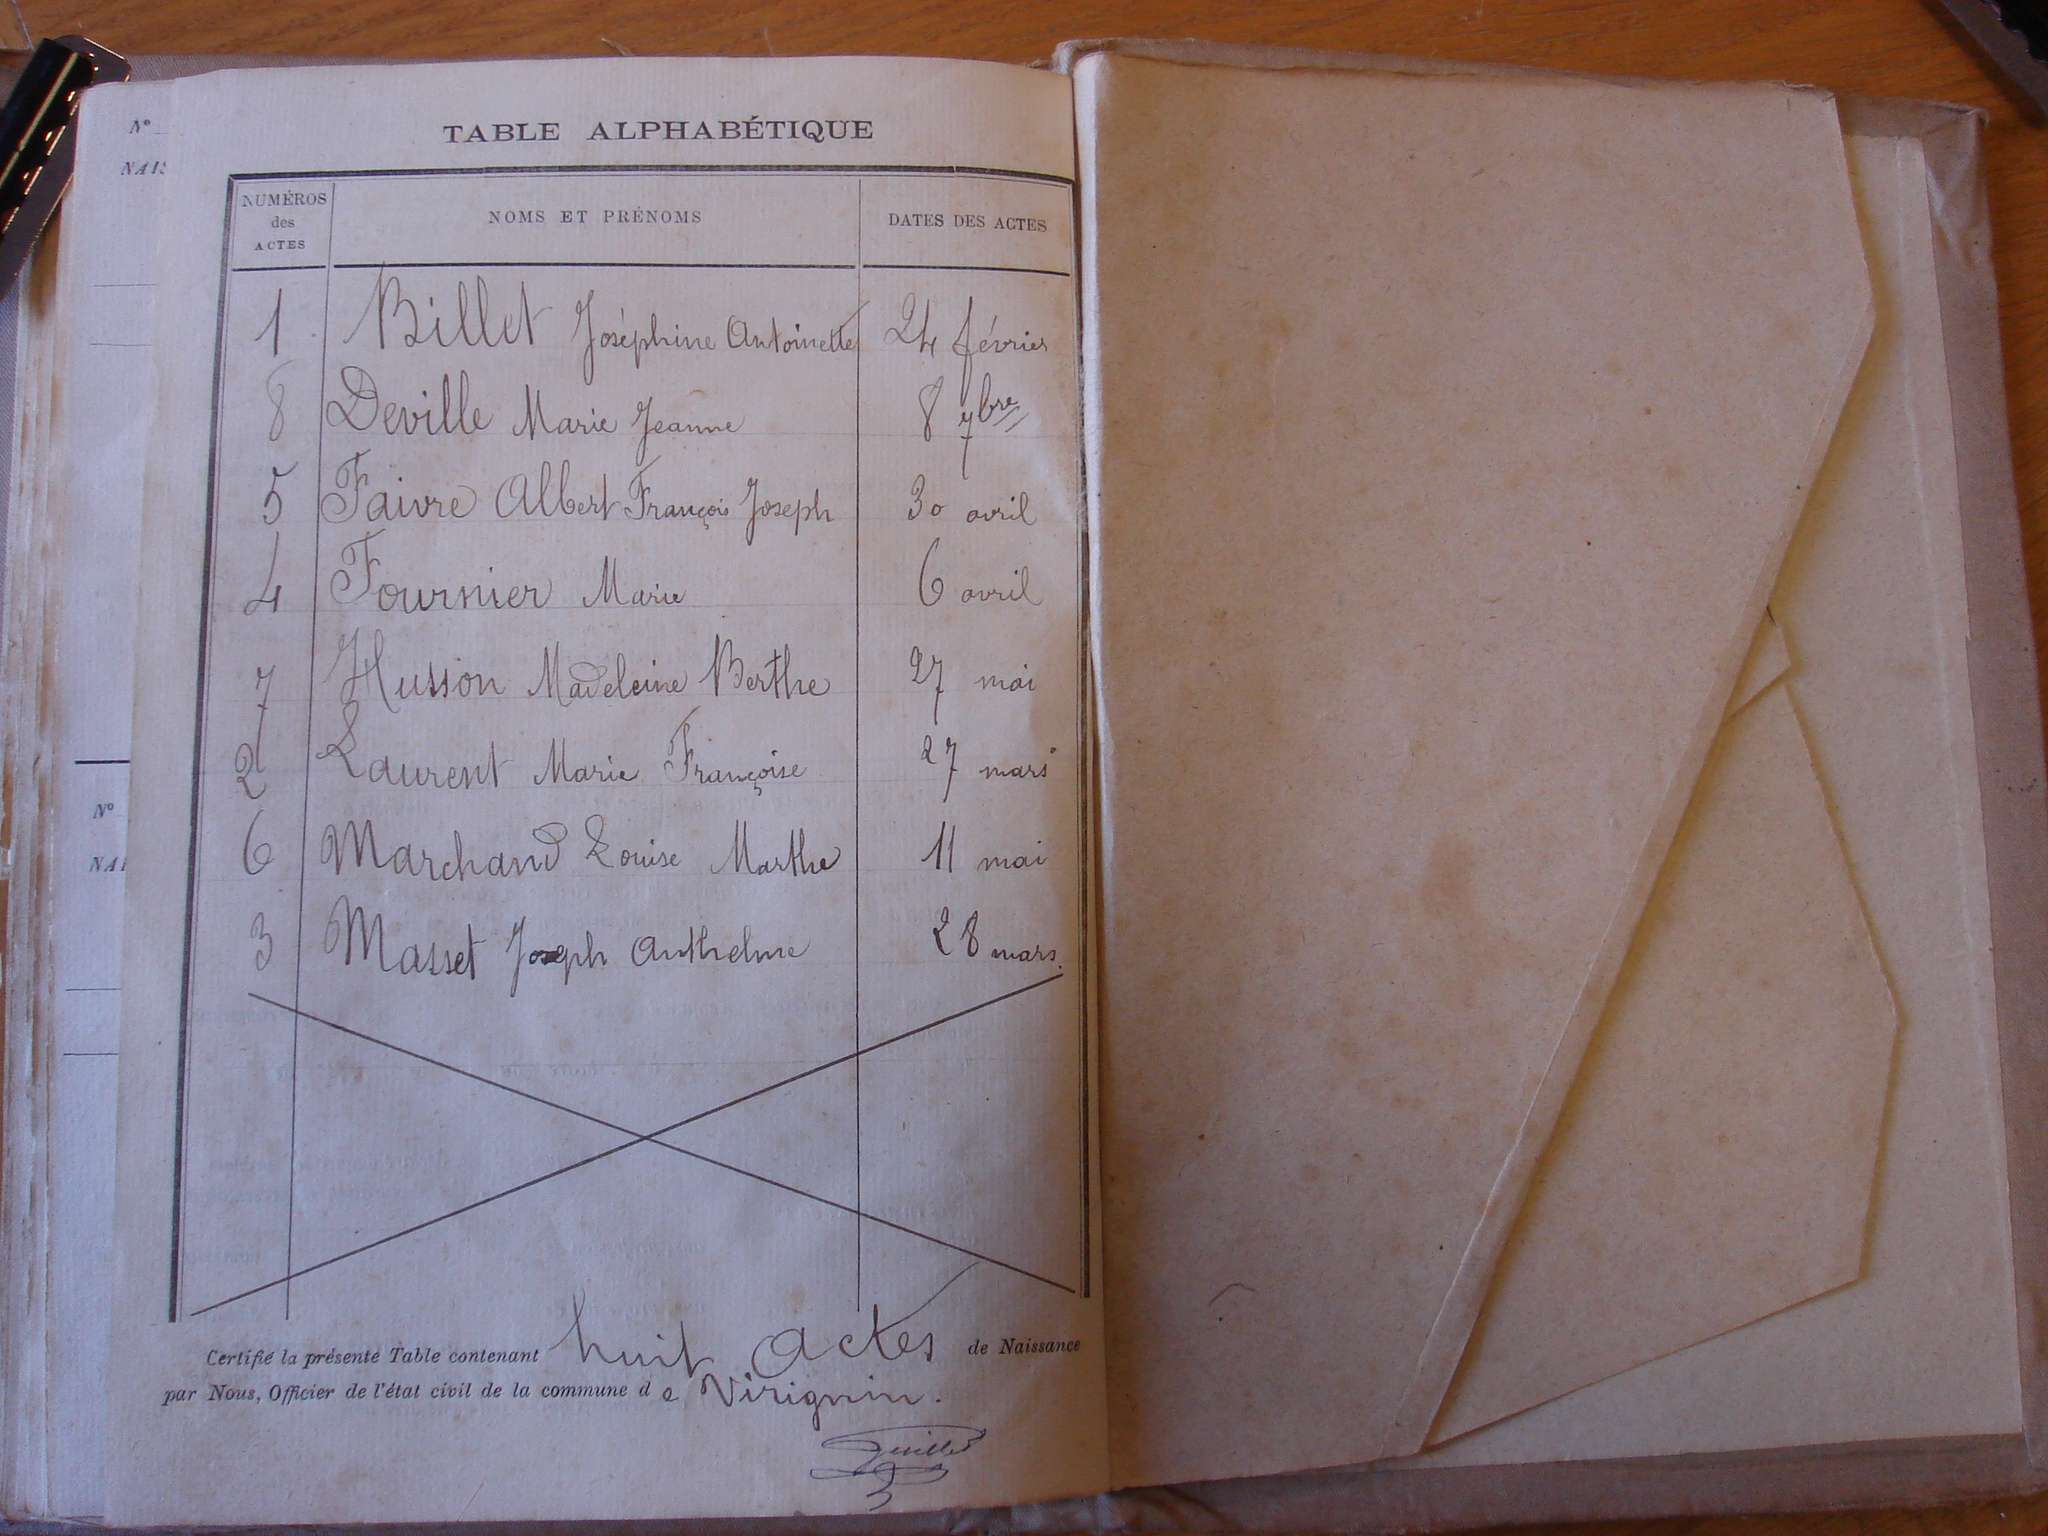 TABLE ALPHABÉTIQUE
NUMÉROS des ACTES NOMS ET PRÉNOMS DATES DES ACTES
1 Billet Joséphine Antoinette 24 février
8 Deville Marie Jeanne 8 7bre
5 Faivre Albert François Joseph 30 avril
4 Fournier Marie 6 avril
7 Husson Madeleine Berthe 27 mai
2 Laurent Marie Françoise 27 mars
6 Marchand Louise Marthe 11 mai
3 Masset Joseph Anthelme 28 mars.
Certifié la présente Table contenant huit actes de Naissance
par Nous, Officier de l'état civil de la commune de Virignin.
N°
NAIS
N°
NAI